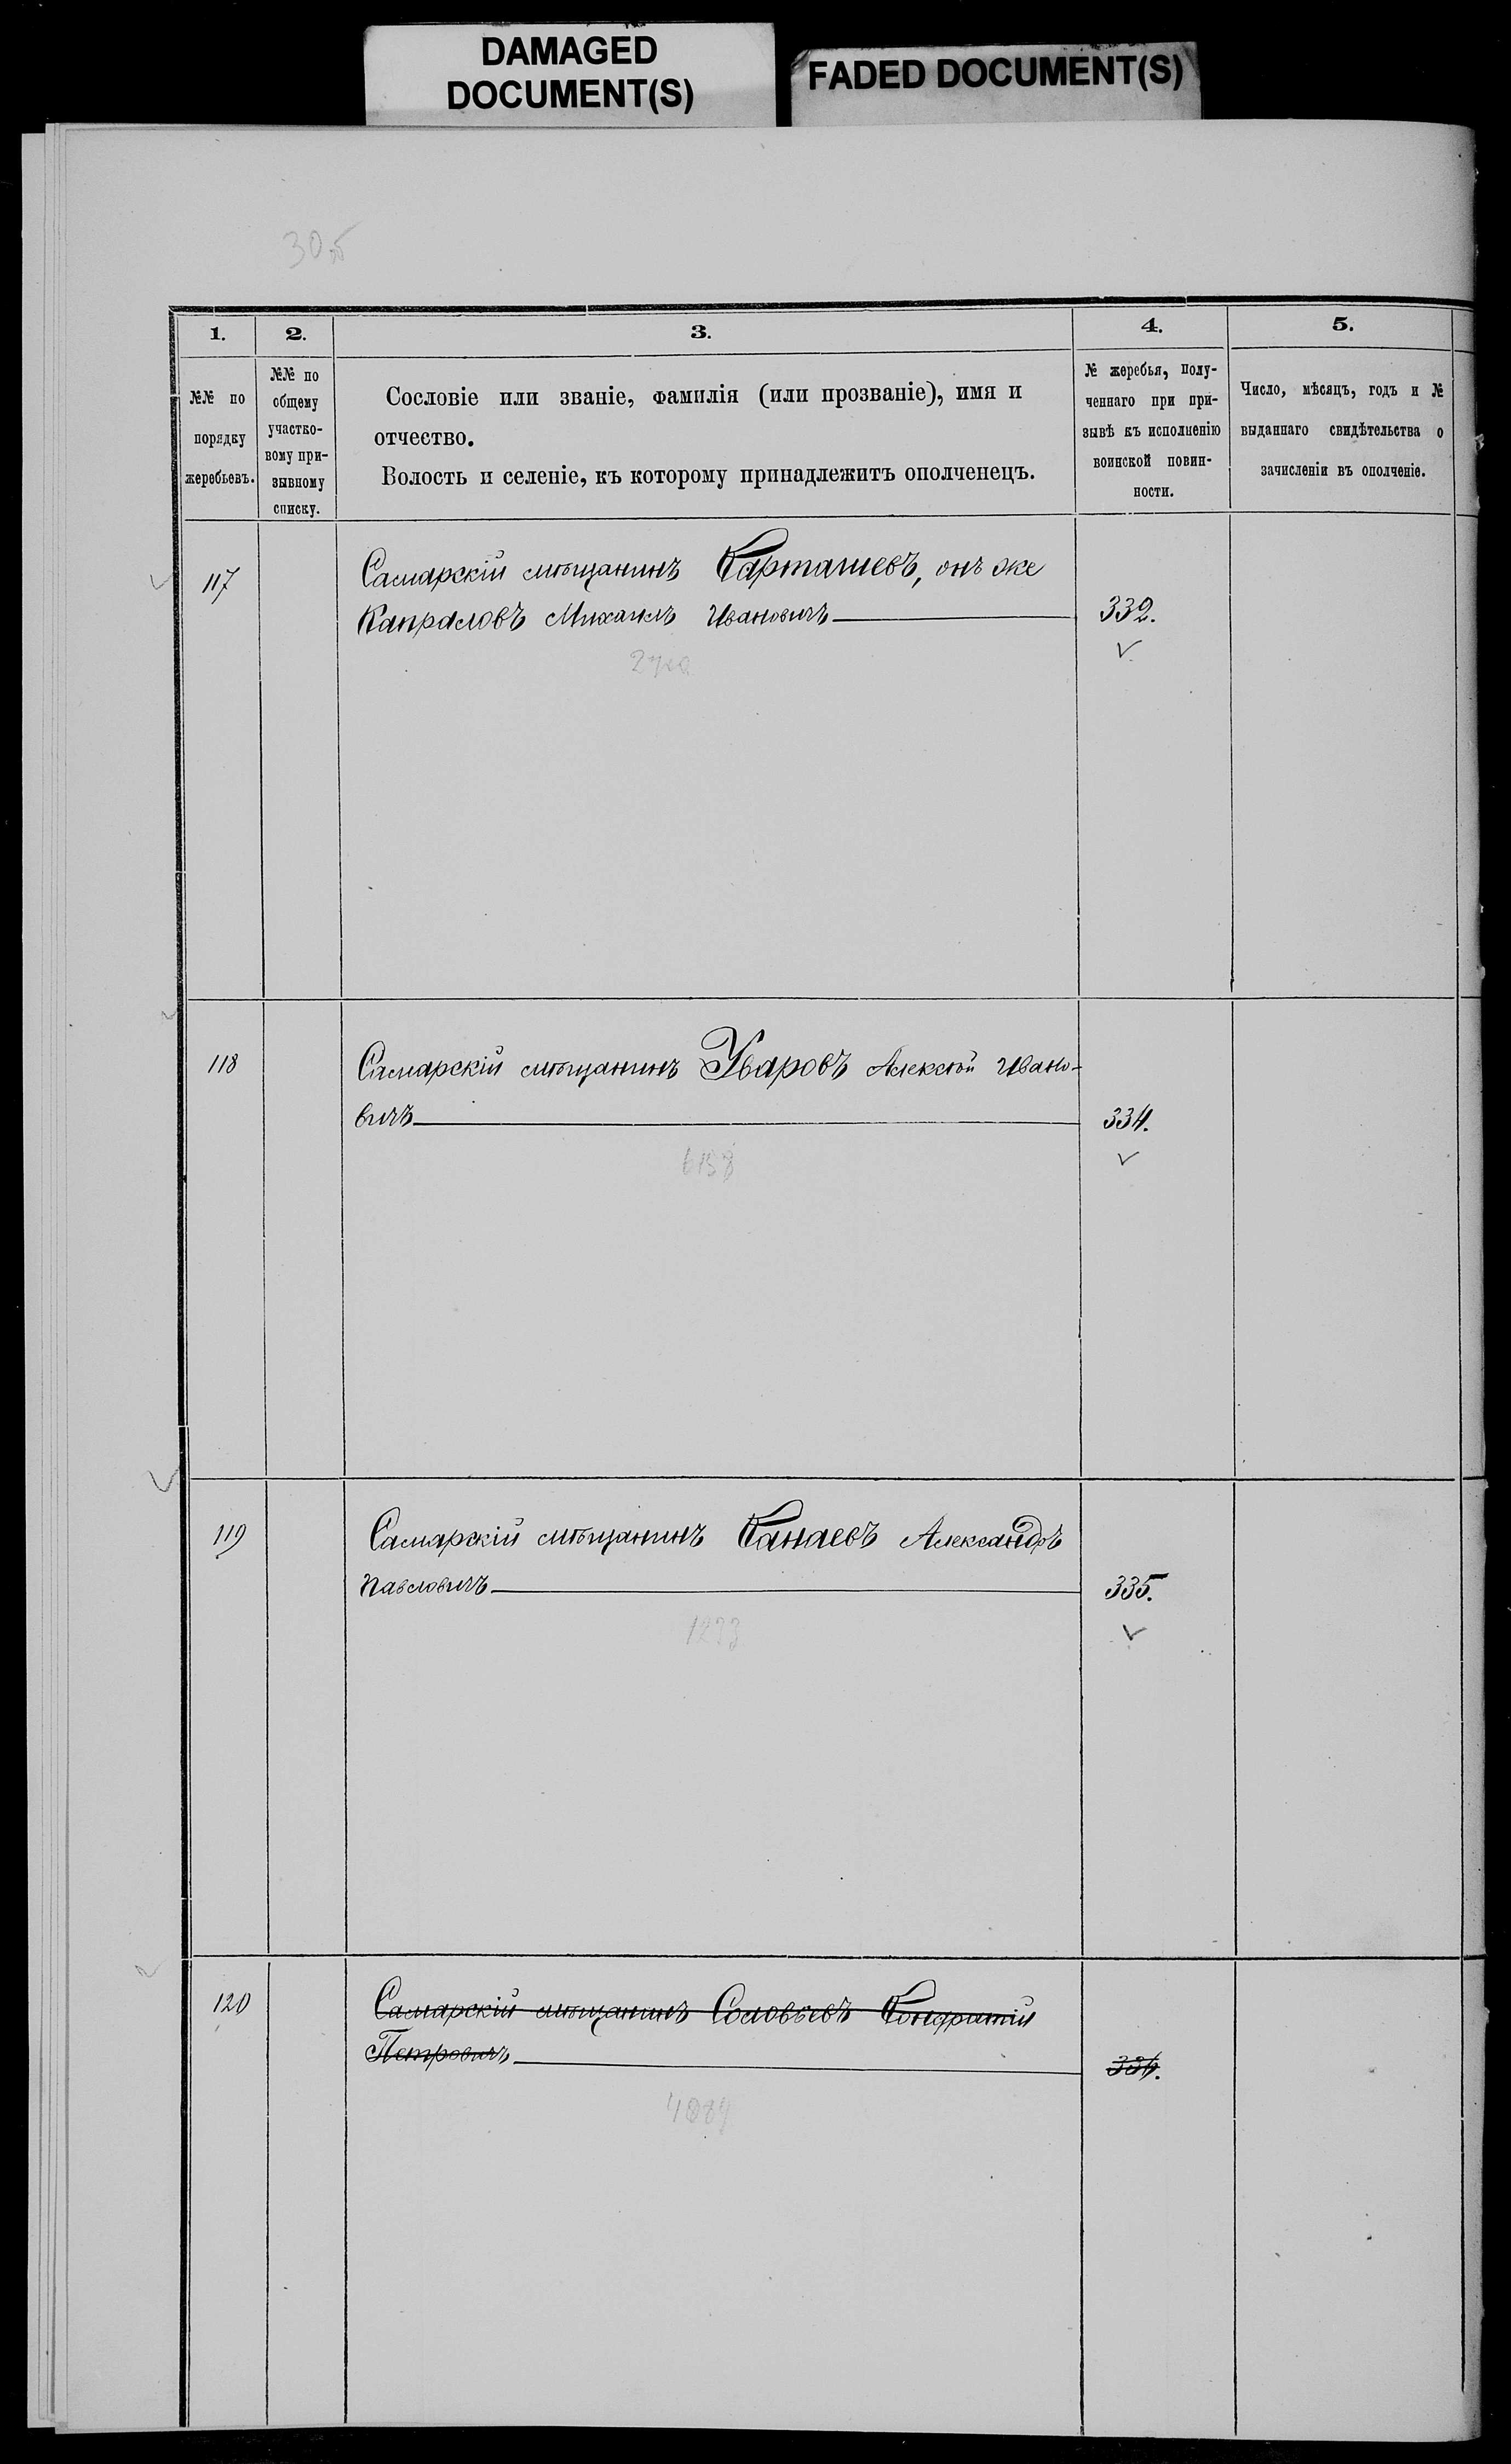 DAMAGED
DOCUMENT(S)
FADED DOCUMENT(S)
305
1.
2.
3.
4.
5.
№№ по
порядку
жеребьевъ.
№№ по
общему
участко-
вому при-
зывному
списку.
Сословіе или званіе, фамилія (или прозваніе), имя и
отчество.
Волость и селеніе, къ которому принадлежитъ ополченецъ.
№ жеребья, полу-
ченнаго при при-
зывѣ къ исполненію
воинской повин-
ности.
Число, мѣсяцъ, годъ и №
выданнаго свидѣтельства о
зачисленіи въ ополченіе.
117
Самарскій мѣщанинъ Карташевъ, онъ же
Капраловъ Михаилъ Ивановичъ
332.
118
Самарскій мѣщанинъ Уваровъ Алексѣй Ивано-
вичъ
334.
6158
119
Самарскій мѣщанинъ Канаевъ Александръ
Павловичъ
335.
120
Самарскій мѣщанинъ Соловьевъ Кондратій
Петровичъ
336.